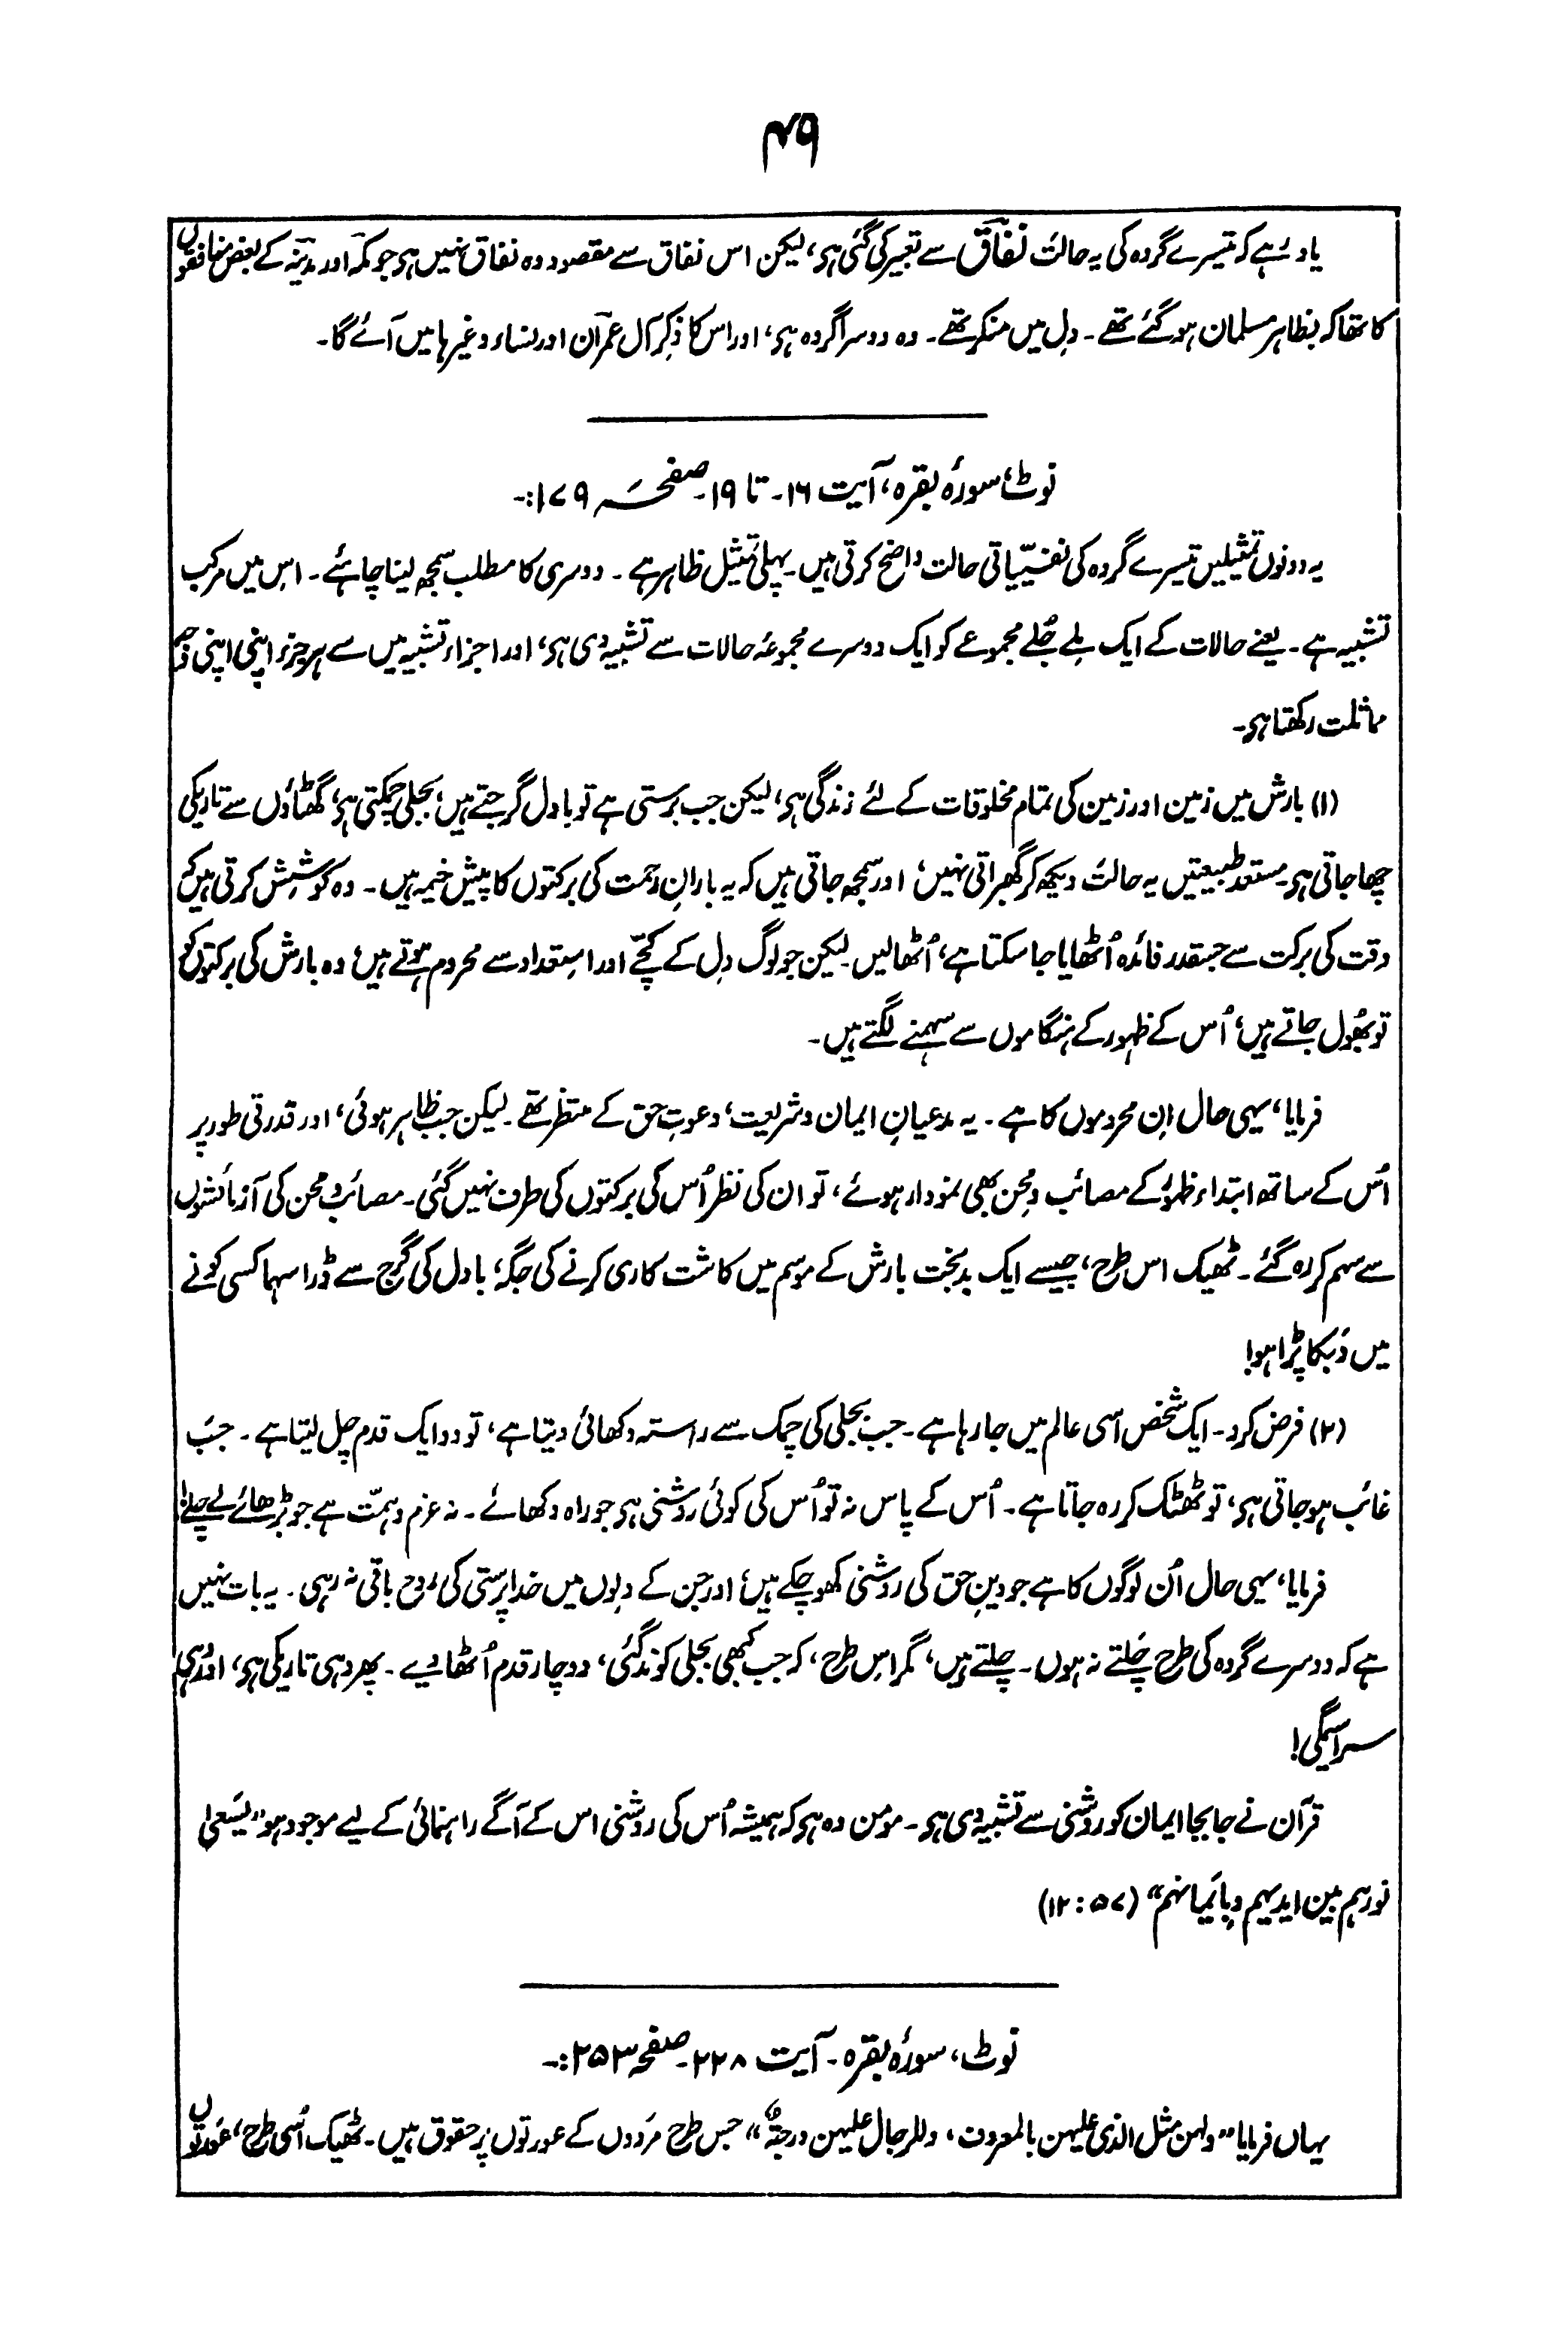 ۴۹
یاد رہے کہ تیسرے گروہ کی یہ حالت نفاق سے تعبیر کی گئی ہو، لیکن اس نفاق سے مقصود وہ نفاق نہیں ہو جو مکہ اور مدینہ کے بعض منافقوں
کا تھا کہ بظاہر مسلمان ہو گئے تھے۔ دل میں منکر تھے۔ وہ دوسرا گروہ ہو، اور اس کا ذکر آل عمران اور نساء وغیرہا میں آئے گا۔
نوٹ، سورۂ بقرہ، آیت ۱۶۔ تا ۱۹۔ صفحہ ۱۷۹:۔
یہ دونوں تمثیلیں تیسرے گروہ کی نفسیّاتی حالت واضح کرتی ہیں۔ پہلی تمثیل ظاہر ہے۔ دوسری کا مطلب سمجھ لینا چاہئے۔ اس میں مرکب
تشبیہ ہے۔ یعنے حالات کے ایک ملے جُلے مجموعے کو ایک دوسرے مجموعۂ حالات سے تشبیہ دی ہو، اور اجزاء تشبیہ میں سے ہر جزء اپنی اپنی
مماثلت رکھتا ہو۔
(۱) بارش میں زمین اور زمین کی تمام مخلوقات کے لئے زندگی ہو، لیکن جب برستی ہے تو بادل گرجتے ہیں، بجلی چمکتی ہو، گھٹاؤں سے تاریکی
چھا جاتی ہو۔ مستعد طبیعتیں یہ حالت دیکھ کر گھبراتی نہیں، اور سمجھ جاتی ہیں کہ یہ بارانِ رحمت کی برکتوں کا پیش خیمہ ہیں۔ وہ کوشش کرتی ہیں کہ
وقت کی برکت سے جسقدر فائدہ اُٹھایا جا سکتا ہے، اُٹھا لیں۔ لیکن جو لوگ دِل کے کچّے اور استعداد سے محروم ہوتے ہیں، وہ بارش کی برکتوں کو
تو بھُول جاتے ہیں، اُس کے ظہور کے ہنگاموں سے سہمنے لگتے ہیں۔
فرمایا، یہی حال اِن محروموں کا ہے۔ یہ مدعیانِ ایمان و شریعت، دعوتِ حق کے منتظر تھے۔ لیکن جب ظاہر ہوئی، اور قدرتی طور پر
اُس کے ساتھ ابتداء ظہور کے مصائب و محن بھی نمودار ہوئے، تو ان کی نظر اُس کی برکتوں کی طرف نہیں گئی۔ مصائب و محن کی آزمائشوں
سے سہم کر رہ گئے۔ ٹھیک اس طرح، جیسے ایک بدبخت بارش کے موسم میں کاشت کاری کرنے کی جگہ، بادل کی گرج سے ڈرا سہما کسی کونے
میں دَبکا پڑا ہو!
(۲) فرض کرو۔ ایک شخص اسی عالم میں جا رہا ہے۔ جب بجلی کی چمک سے راستہ دکھائی دیتا ہے، تو دو ایک قدم چل لیتا ہے۔ جب
غائب ہو جاتی ہو، تو ٹھٹک کر رہ جاتا ہے۔ اُس کے پاس نہ تو اُس کی کوئی روشنی ہو جو راہ دکھائے۔ نہ عزم و ہمّت ہے جو بڑھائے لے چلے!
فرمایا، یہی حال اُن لوگوں کا ہے جو دینِ حق کی روشنی کھو چکے ہیں، اور جن کے دِلوں میں خدا پرستی کی رُوح باقی نہ رہی۔ یہ بات نہیں
ہے کہ دوسرے گروہ کی طرح چَلتے نہ ہوں۔ چلتے ہیں، مگر اِس طرح، کہ جب کبھی بجلی کوند گئی، دو چار قدم اُٹھا دیے۔ پھر وہی تاریکی ہو، اور وہی
سراسیمگی!
قرآن نے جا بجا ایمان کو روشنی سے تشبیہ دی ہو۔ مومن وہ ہو کہ ہمیشہ اُس کی روشنی اس کے آگے راہنمائی کے لیے موجود ہو "یسعیٰ
نورہم بین ایدیہم و بایمانہم" (۵۷ : ۱۲)
نوٹ، سورۂ بقرہ۔ آیت ۲۲۸۔ صفحہ ۲۵۳:۔
یہاں فرمایا "ولہن مثل الذی علیہن بالمعروف، وللرجال علیہن درجۃٌ" جس طرح مَردوں کے عورتوں پر حقوق ہیں۔ ٹھیک اُسی طرح، عورتوں